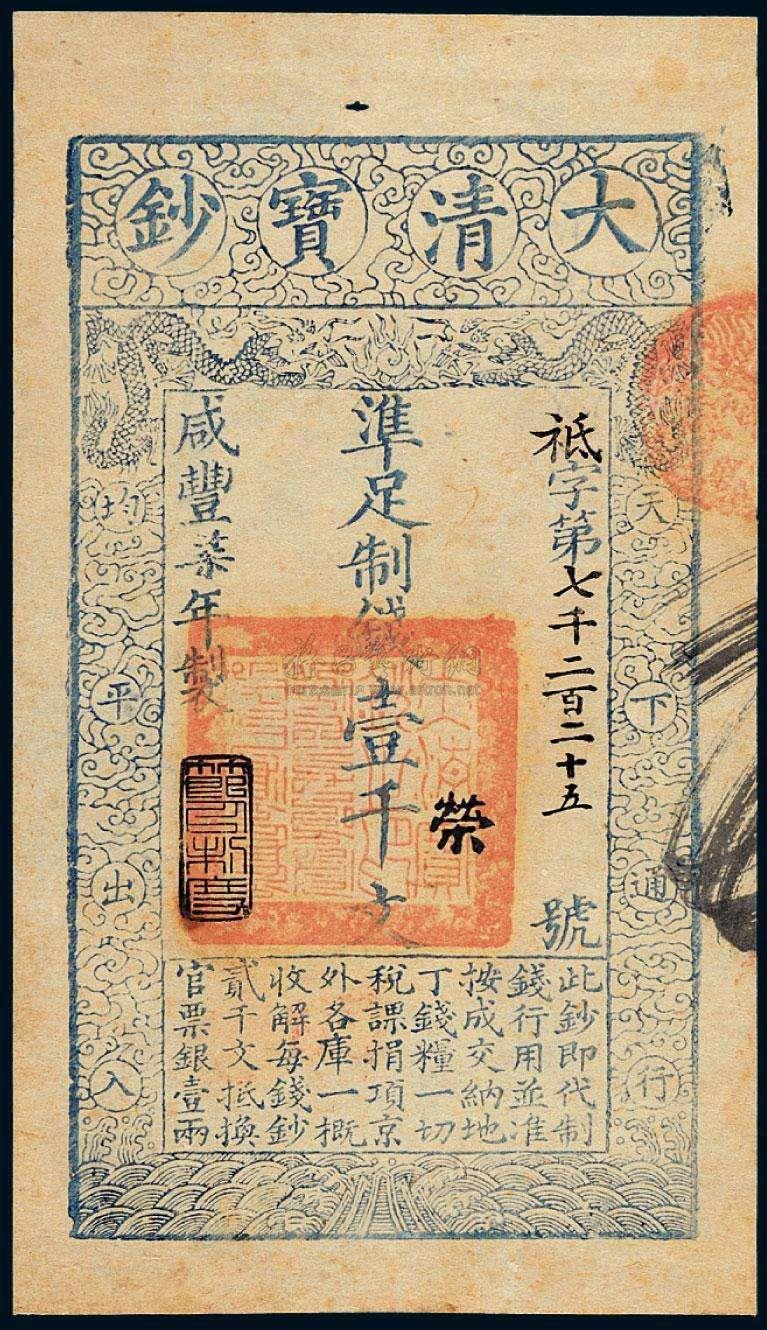 大清寶鈔
天下通行
均平出入
祗字第七千二百二十五號
準足制錢壹千文
榮
咸豐柒年製
節以制度
此鈔即代制
錢行用並准
按成交納地
丁錢糧一切
稅課捐項京
外各庫一概
收解每錢鈔
貳千文抵換
官票銀壹兩